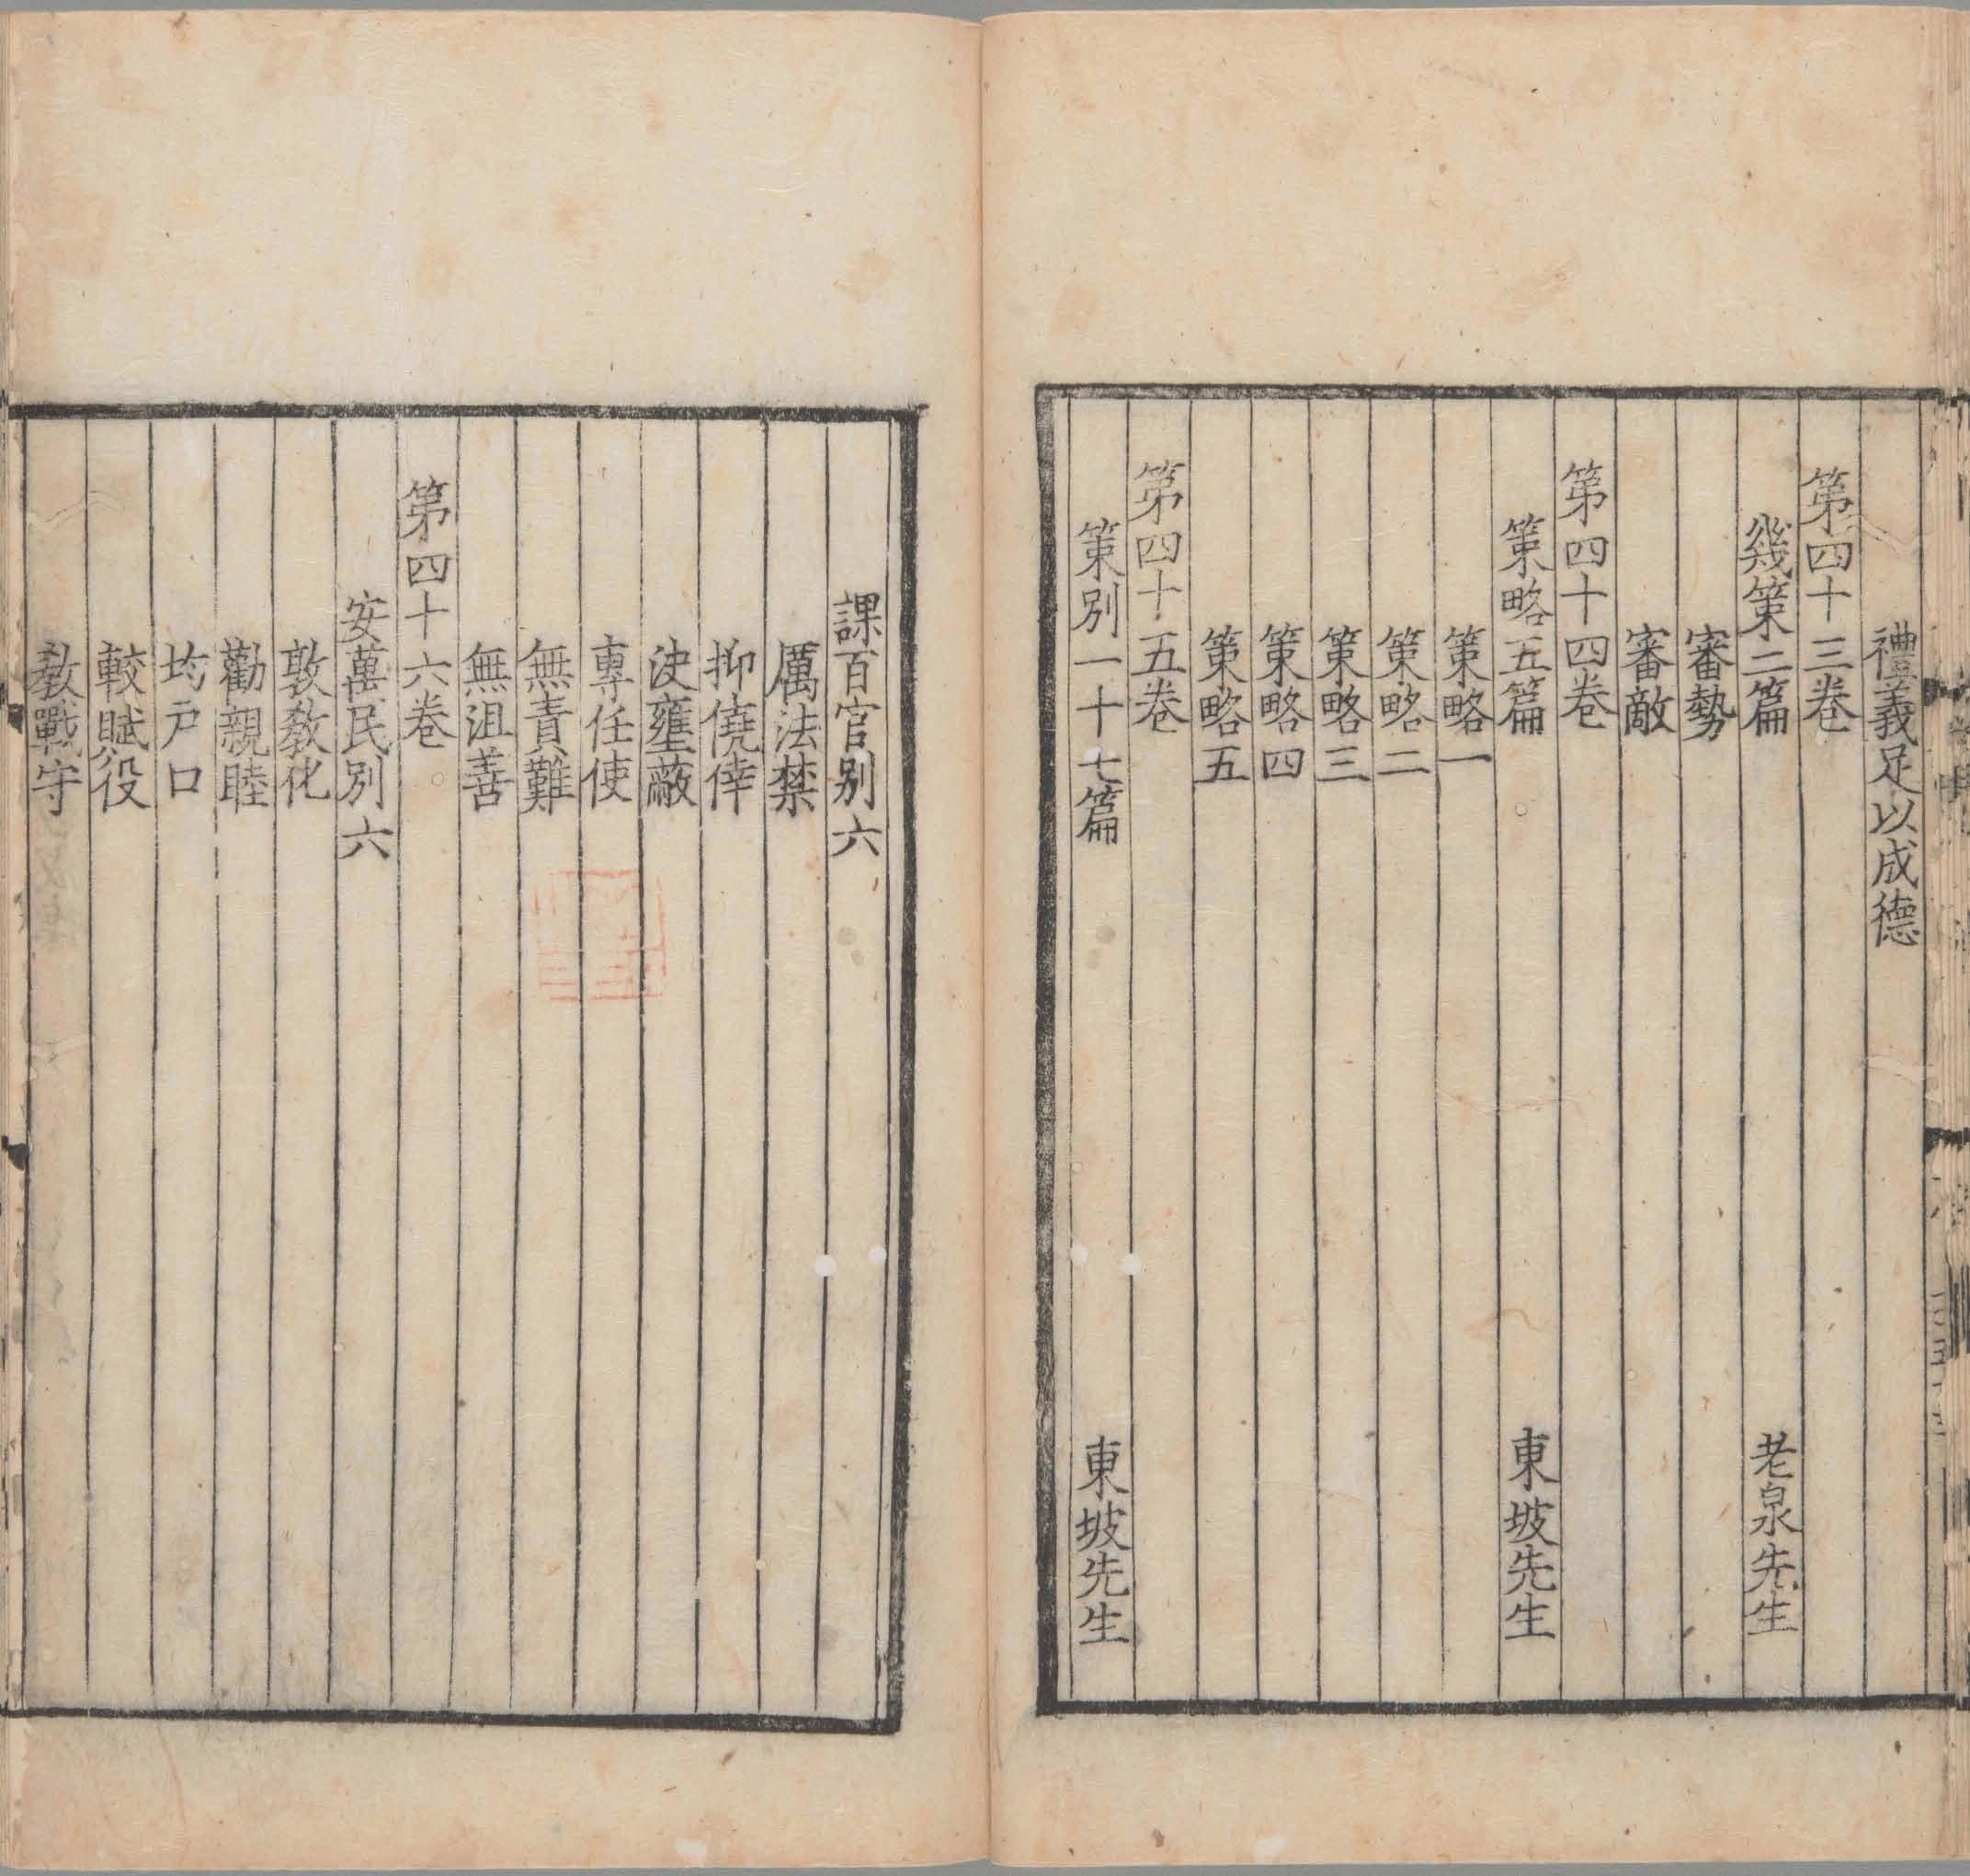 禮義足以成德
第四十三卷
幾策二篇 老泉先生
審勢
審敵
第四十四卷
策略五篇 東坡先生
策略一
策略二
策略三
策略四
策略五
第四十五卷
策別一十七篇 東坡先生
課百官别六
厲法禁
抑僥倖
决壅蔽
專任使
無責難
無沮善
第四十六卷
安萬民别六
敦敎化
勸親睦
均戸口
較賦役
敎戰守